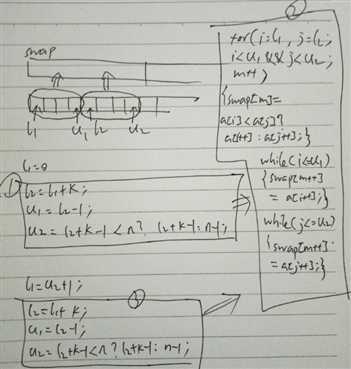 swap
l1 u1 l2 u2
l1=0
①
l2=l1+k;
u1=l2-1;
u2=l2+k-1<n? l2+k-1:n-1;
l1=u2+1;
③
l2=l1+k;
u1=l2-1;
u2=l2+k-1<n? l2+k-1: n-1;
②
for(i=l1, j=l2;
i<u1 && j<u2;
m++)
{swap[m]=
a[i]<a[j]?
a[i++]: a[j++];}
while(i<=u1)
{swap[m++]
=a[i++];}
while(j<=u2)
{swap[m++]
=a[j++];}